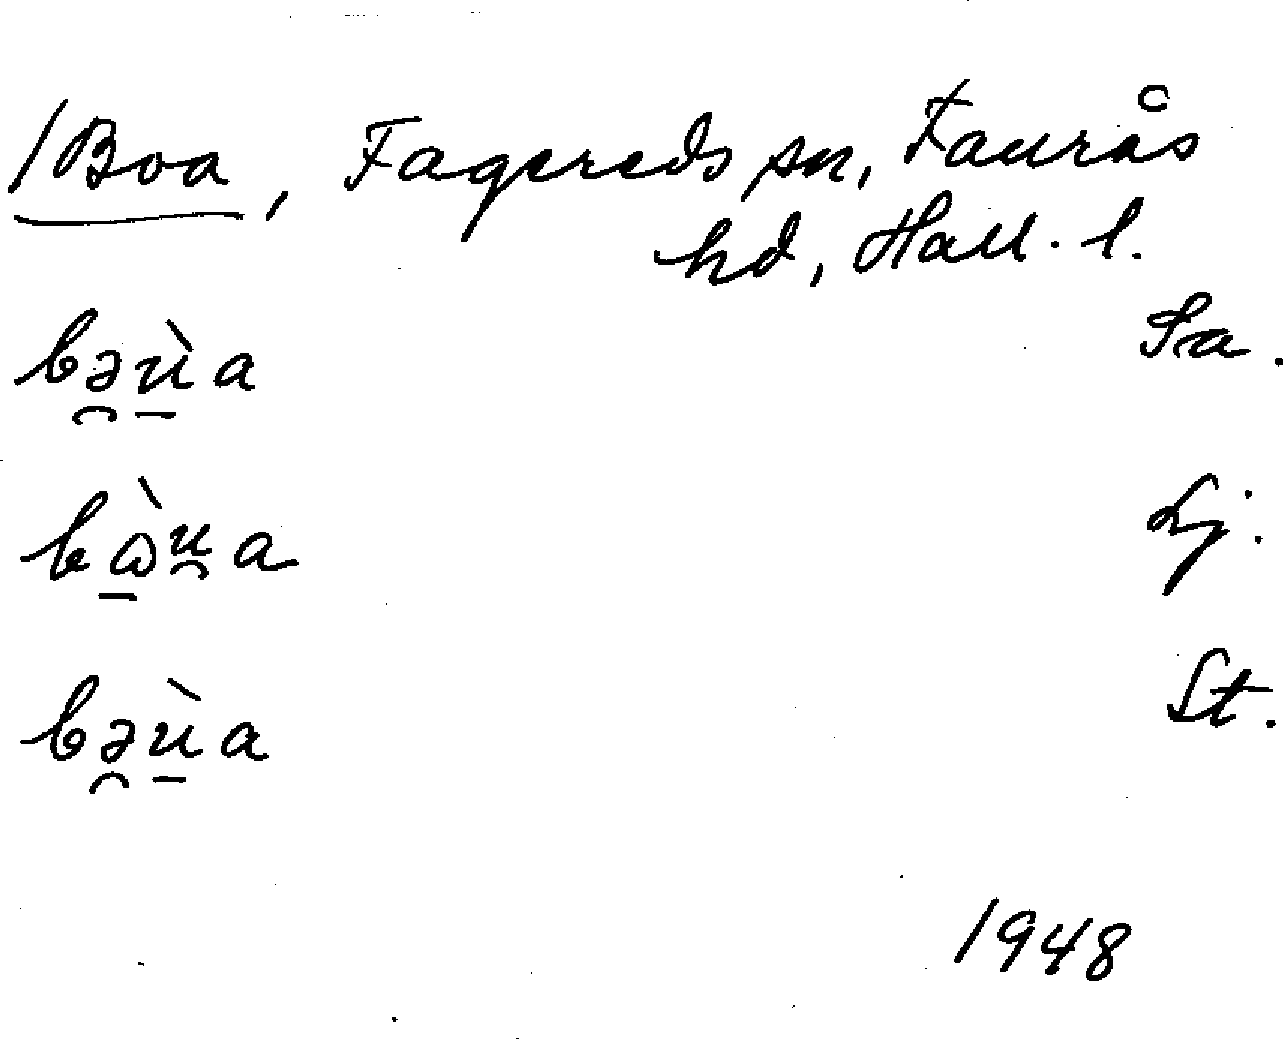 /Boa, Fagereds sn, Faurås
hd, Hall. l.
bə̯ṳ̀a Sa.
bɷ̠̀u̯a Lj.
bə̯ṳ̀a St.
1948